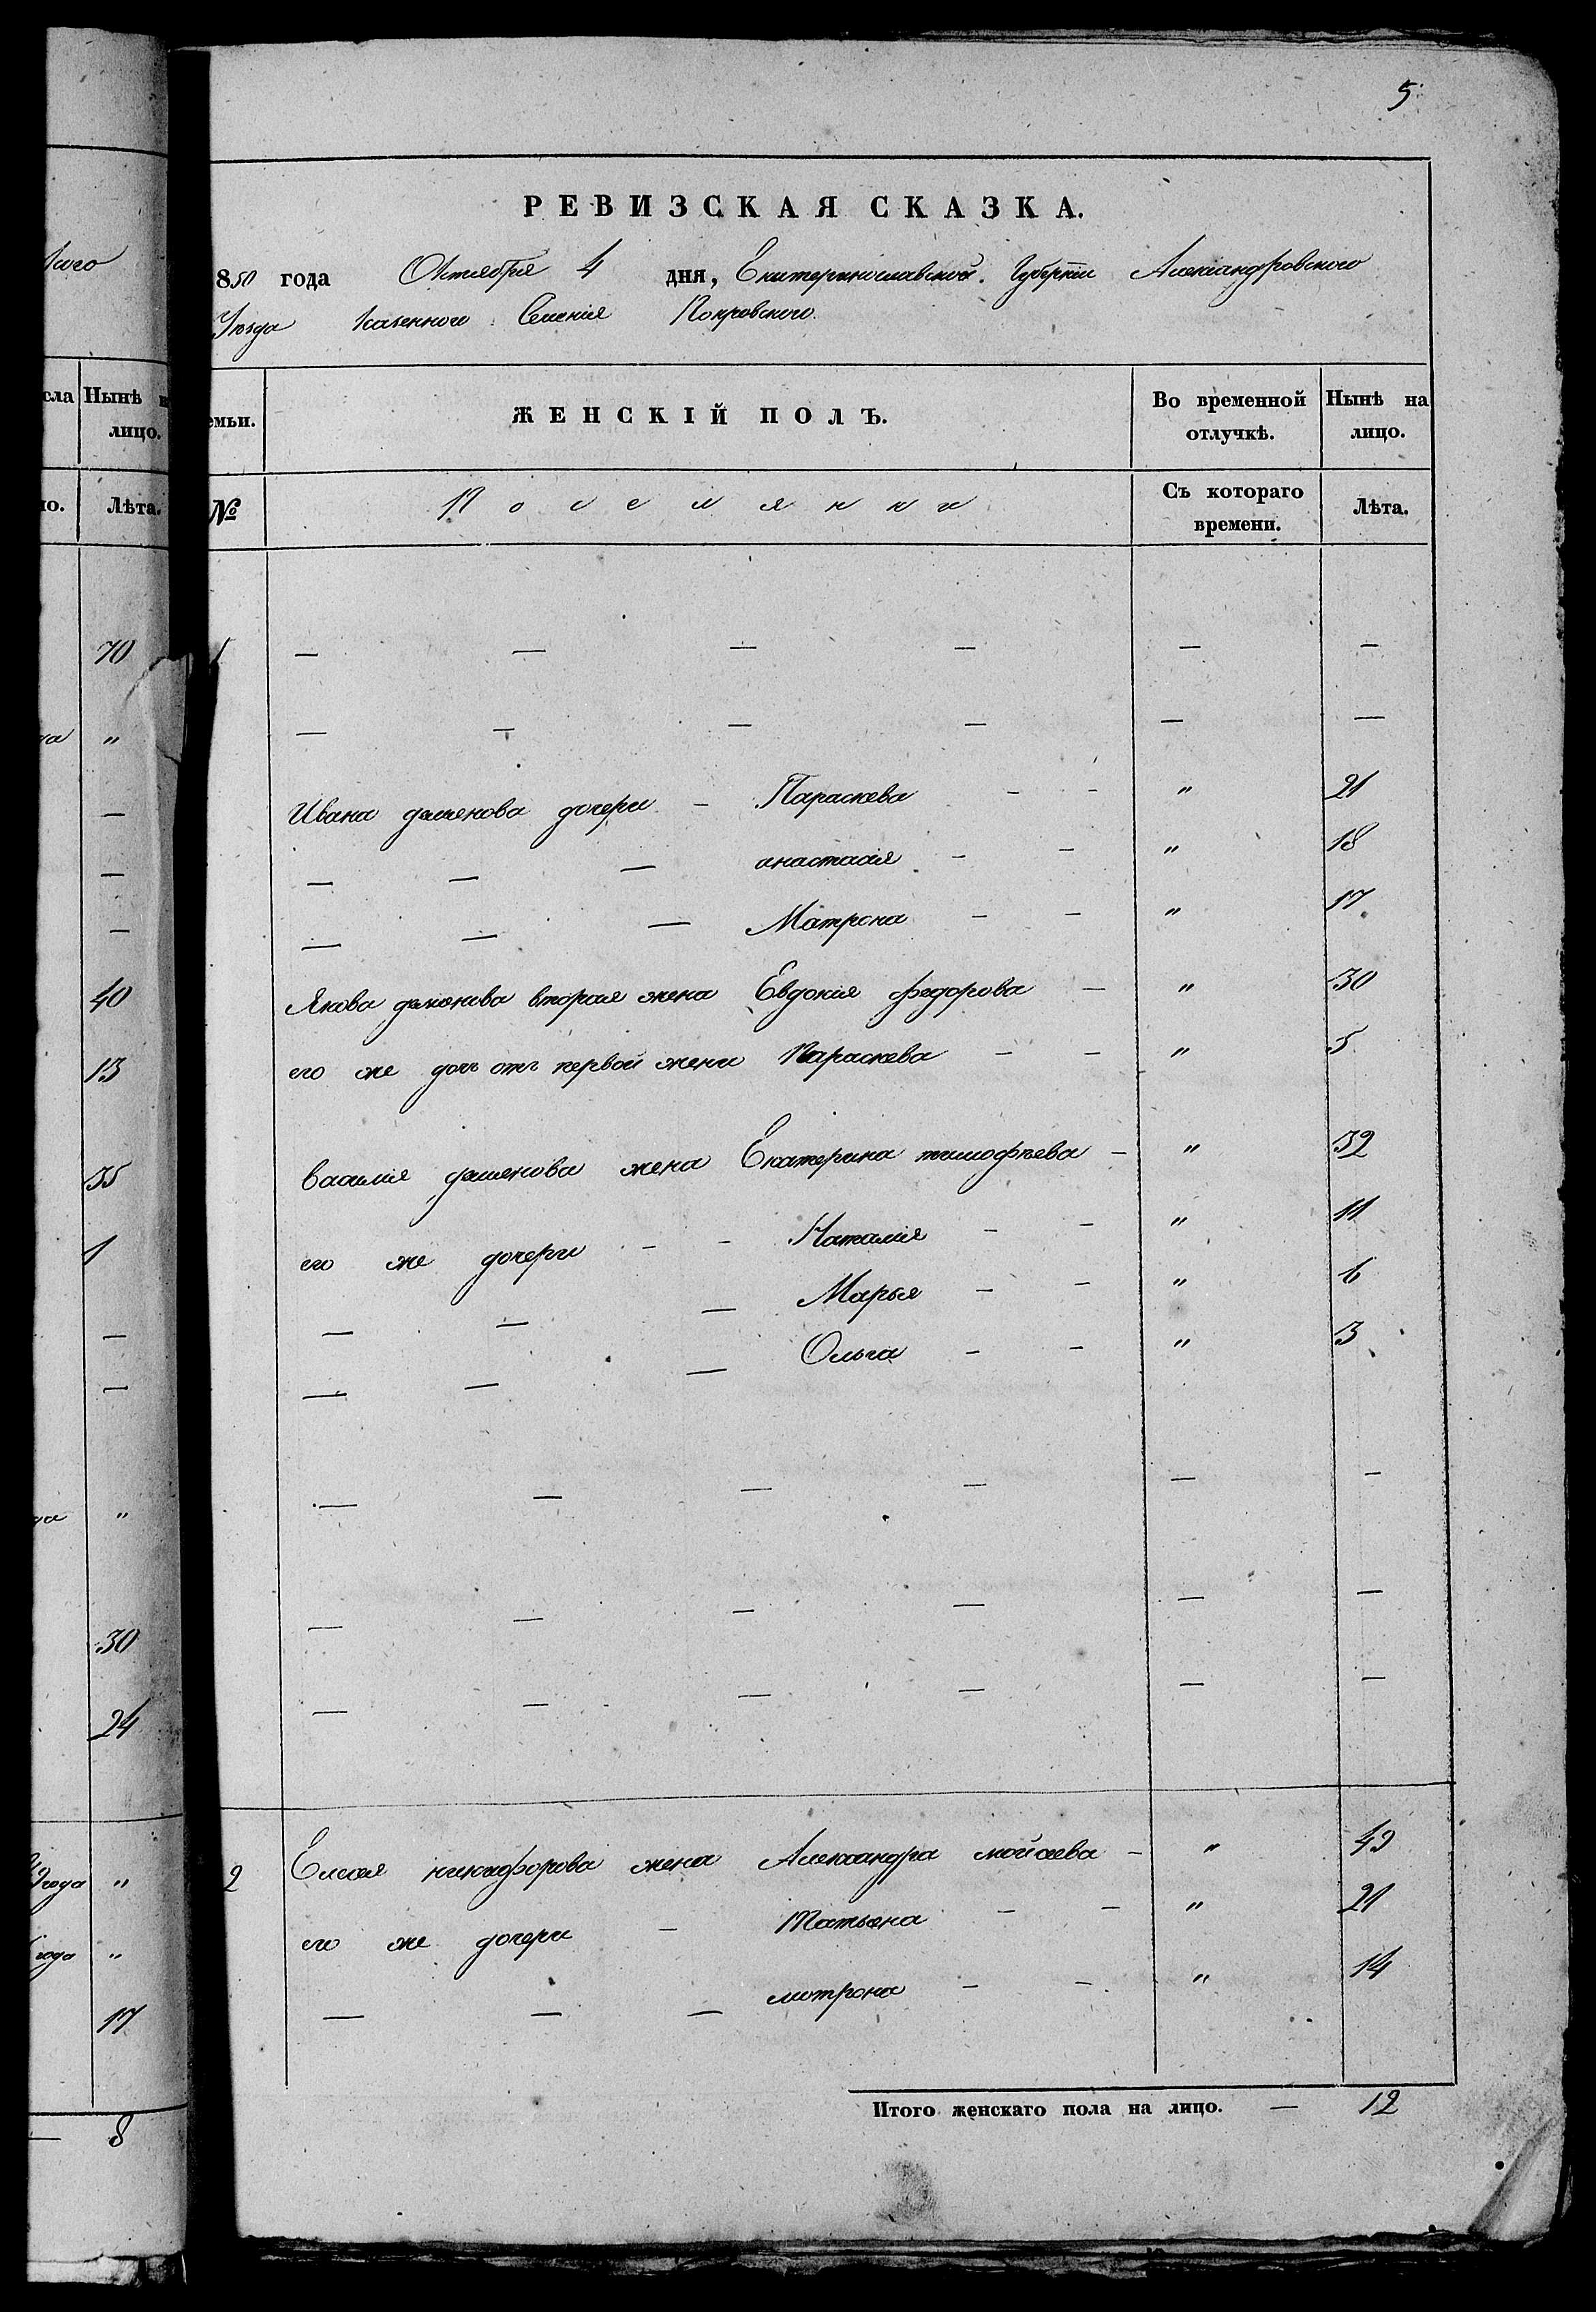 5
РЕВИЗСКАЯ СКАЗКА.
850 года Октября 4 дня, Екатеринославской Губернiи Александровского
Уѣзда казенного Селенiя Покровского.
емьи. ЖЕНСКІЙ ПОЛЪ. Во временной отлучкѣ. Нынѣ на лицо.
№ Поселянки Съ котораго времени. Лѣта.
1 — — — — — —
— — — — — —
Ивана демянова дочери — Параскева — — " 21
— — — анастасия — — " 18
— — — Матрона — — " 17
Якова демянова вторая жена Евдокия федорова — " 30
его же дочь отъ первой жены Параскева — — " 5
василия демянова жена Екатерина тимофѣева — " 32
его же дочери — — Наталия — — " 11
— — — Марья — — " 6
— — — Ольга — — " 3
— — — — — —
— — — — — —
— — — — — —
2 Елисея никифорова жена Александра мойсеева — " 49
его же дочери — Татьяна — — " 21
— — — мотрона — — " 14
Итого женскаго пола на лицо. — 12
сла Нынѣ
лицо.
Лѣта.
70
"
—
—
—
40
13
35
1
—
—
"
30
24
года "
года "
17
— 8